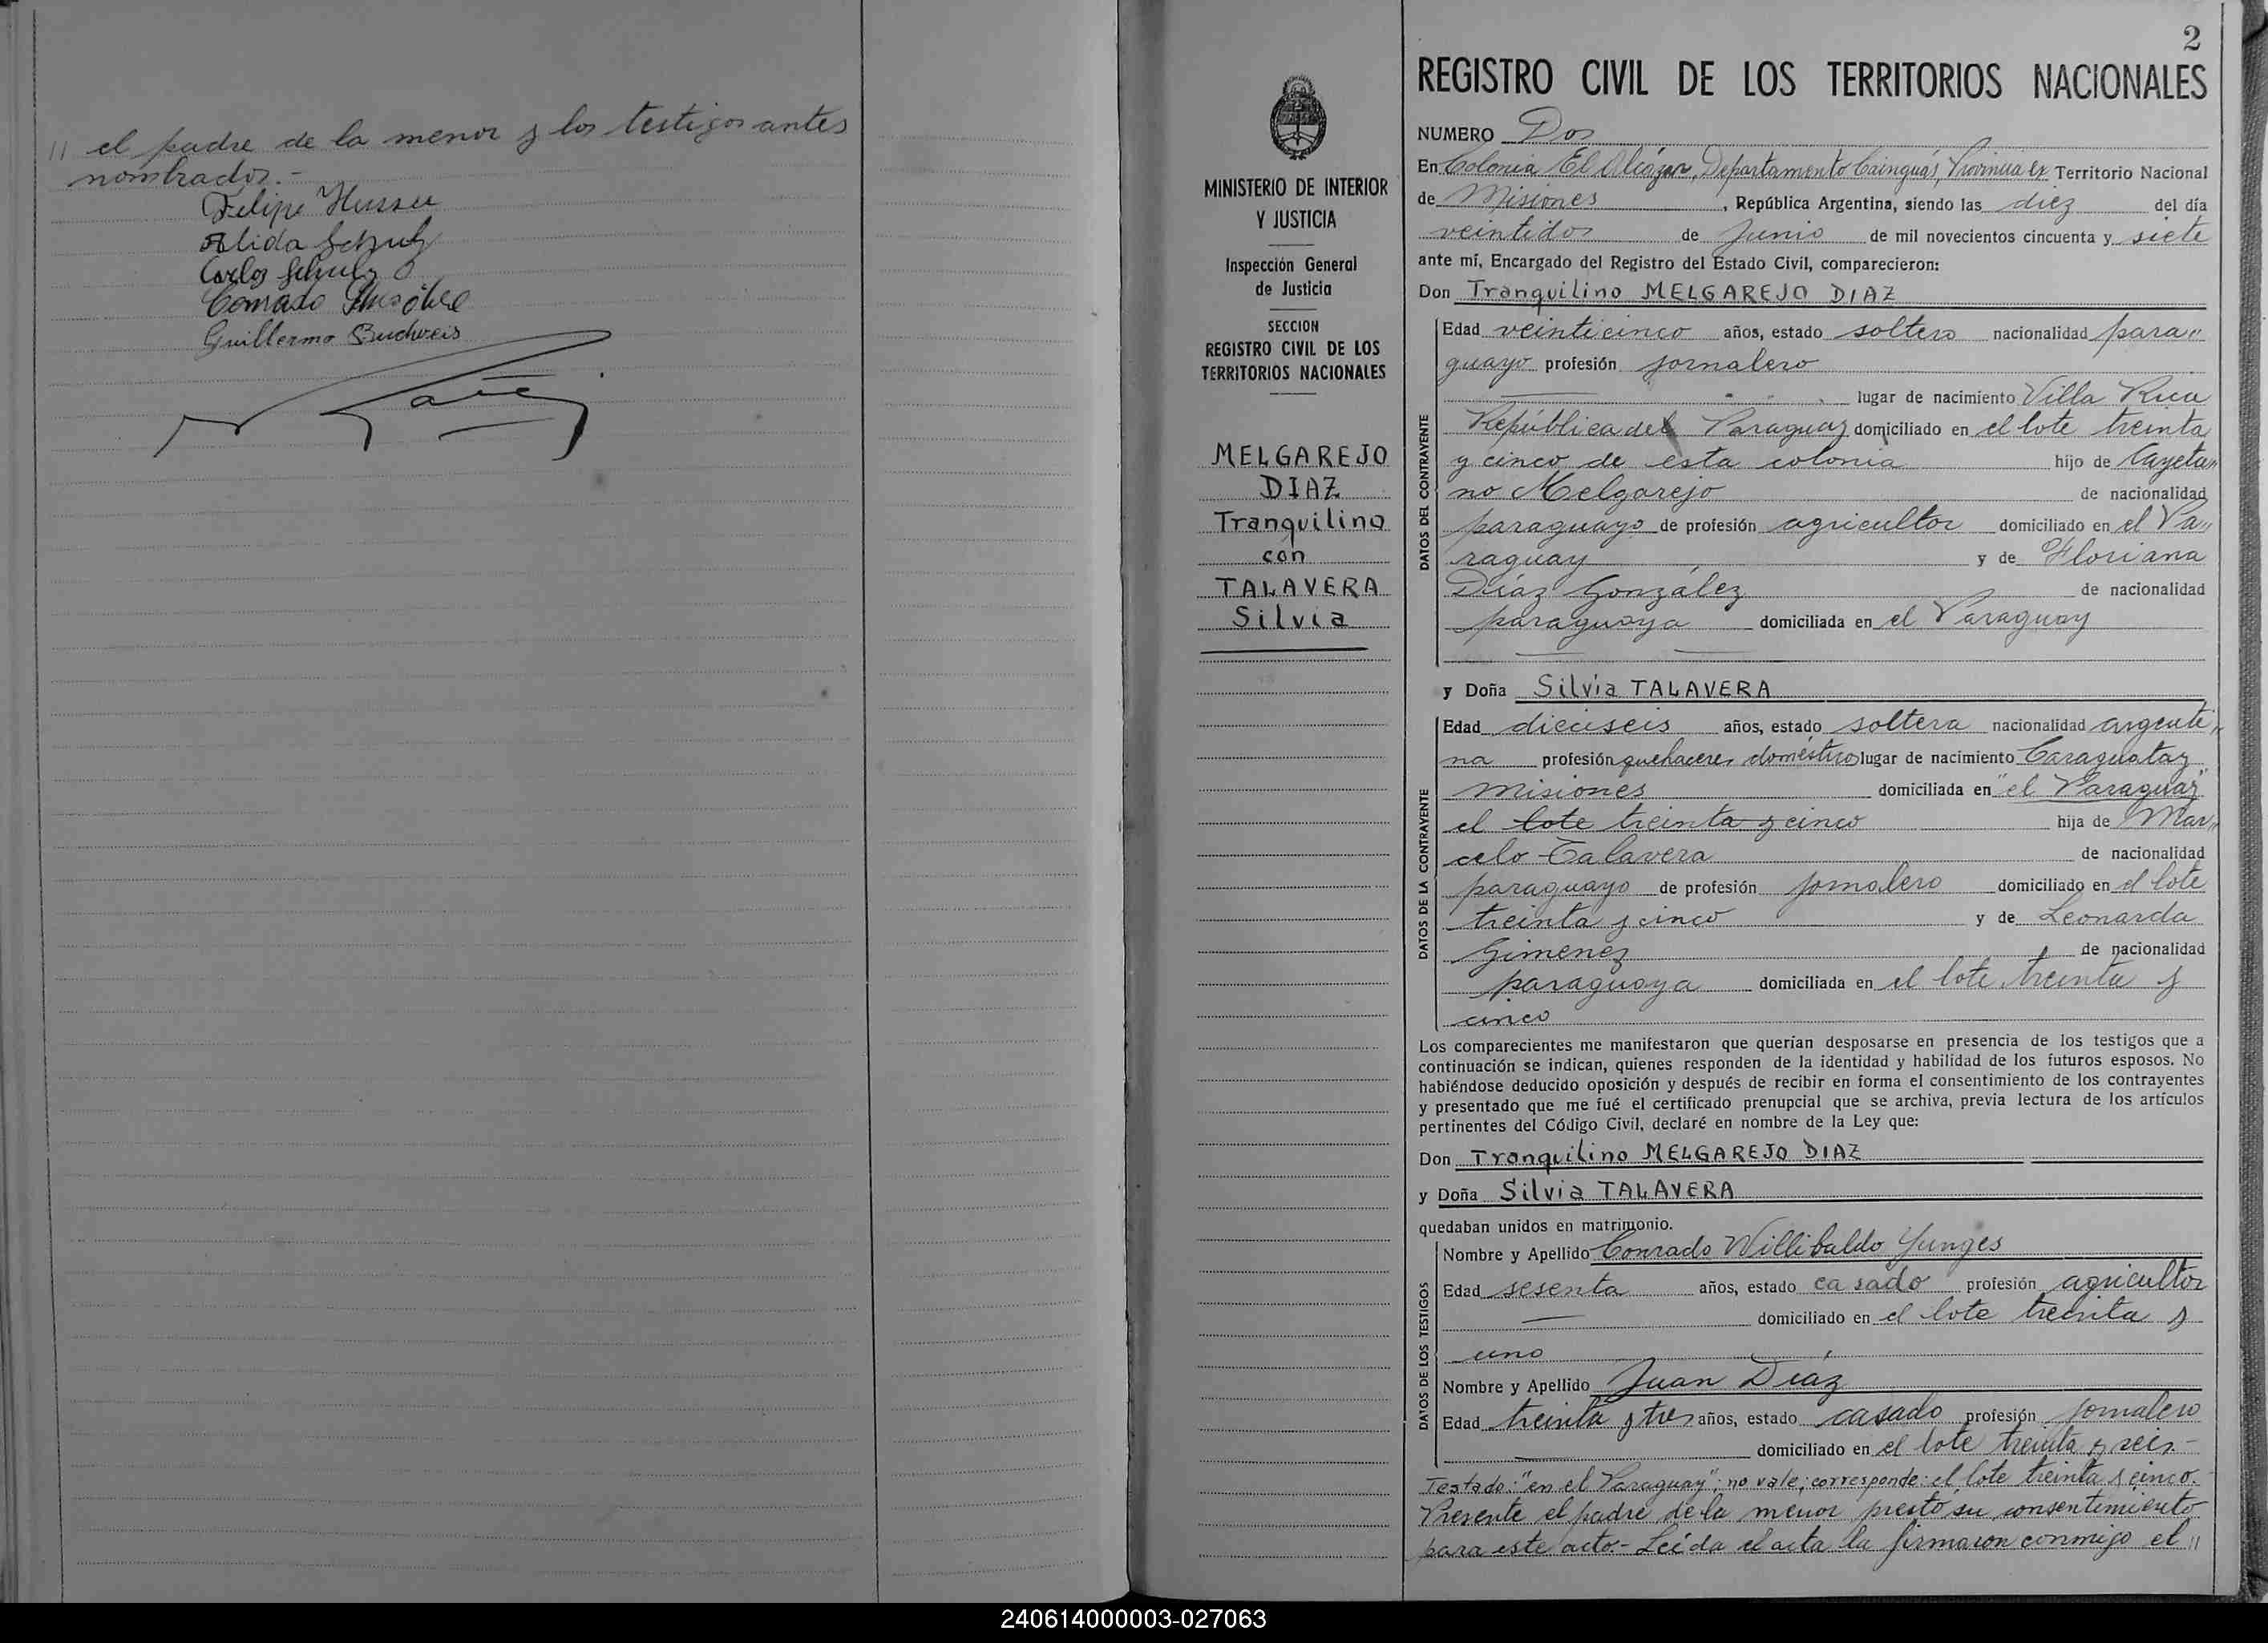 // el padre de la menor y los testigos antes
nombrados.-
Felipe
Alida Schulz
Carlos Schulz
Conrado
Guillermo Buchweis
2
REGISTRO CIVIL DE LOS TERRITORIOS NACIONALES
MINISTERIO DE INTERIOR
Y JUSTICIA
Inspección General
de Justicia
SECCION
REGISTRO CIVIL DE LOS
TERRITORIOS NACIONALES
MELGAREJO
DIAZ
Tranquilino
con
TALAVERA
Silvia
NUMERO Dos
En Colonia El Alcázar, Departamento Cainguás, Provincia ex Territorio Nacional
de Misiones, República Argentina, siendo las diez del día
veintidos de Junio de mil novecientos cincuenta y siete
ante mí, Encargado del Registro del Estado Civil, comparecieron:
Don Tranquilino MELGAREJO DIAZ
DATOS DEL CONTRAYENTE
Edad veinticinco años, estado soltero nacionalidad para"
guayo profesión jornalero
lugar de nacimiento Villa Rica
República del Paraguay domiciliado en el lote treinta
y cinco de esta colonia hijo de Cayeta"
no Melgarejo de nacionalidad
paraguayo de profesión agricultor domiciliado en el Pa"
raguay y de Floriana
Díaz González de nacionalidad
paraguaya domiciliada en el Paraguay
y Doña Silvia TALAVERA
DATOS DE LA CONTRAYENTE
Edad dieciseis años, estado soltera nacionalidad argenti"
na profesión quehaceres domésticos lugar de nacimiento Caraguatay
Misiones domiciliada en "el Paraguay"
el lote treinta y cinco hija de Mar"
celo Talavera de nacionalidad
paraguayo de profesión jornalero domiciliado en el lote
treinta y cinco y de Leonarda
Gimenez de nacionalidad
paraguaya domiciliada en el lote treinta y
cinco
Los comparecientes me manifestaron que querían desposarse en presencia de los testigos que a
continuación se indican, quienes responden de la identidad y habilidad de los futuros esposos. No
habiéndose deducido oposición y después de recibir en forma el consentimiento de los contrayentes
y presentado que me fué el certificado prenupcial que se archiva, previa lectura de los artículos
pertinentes del Código Civil, declaré en nombre de la Ley que:
Don Tranquilino MELGAREJO DIAZ
y Doña Silvia TALAVERA
quedaban unidos en matrimonio.
DATOS DE LOS TESTIGOS
Nombre y Apellido Conrado Willibaldo Yunges
Edad sesenta años, estado casado profesión agricultor
domiciliado en el lote treinta y
uno
Nombre y Apellido Juan Díaz
Edad treinta y tres años, estado casado profesión jornalero
domiciliado en el lote treinta y seis.-
Testado: "en el Paraguay"; no vale; corresponde: el lote treinta y cinco.
Presente el padre de la menor prestó su consentimiento
para este acto.- Leída el acta la firmaron conmigo el //
240614000003-027063